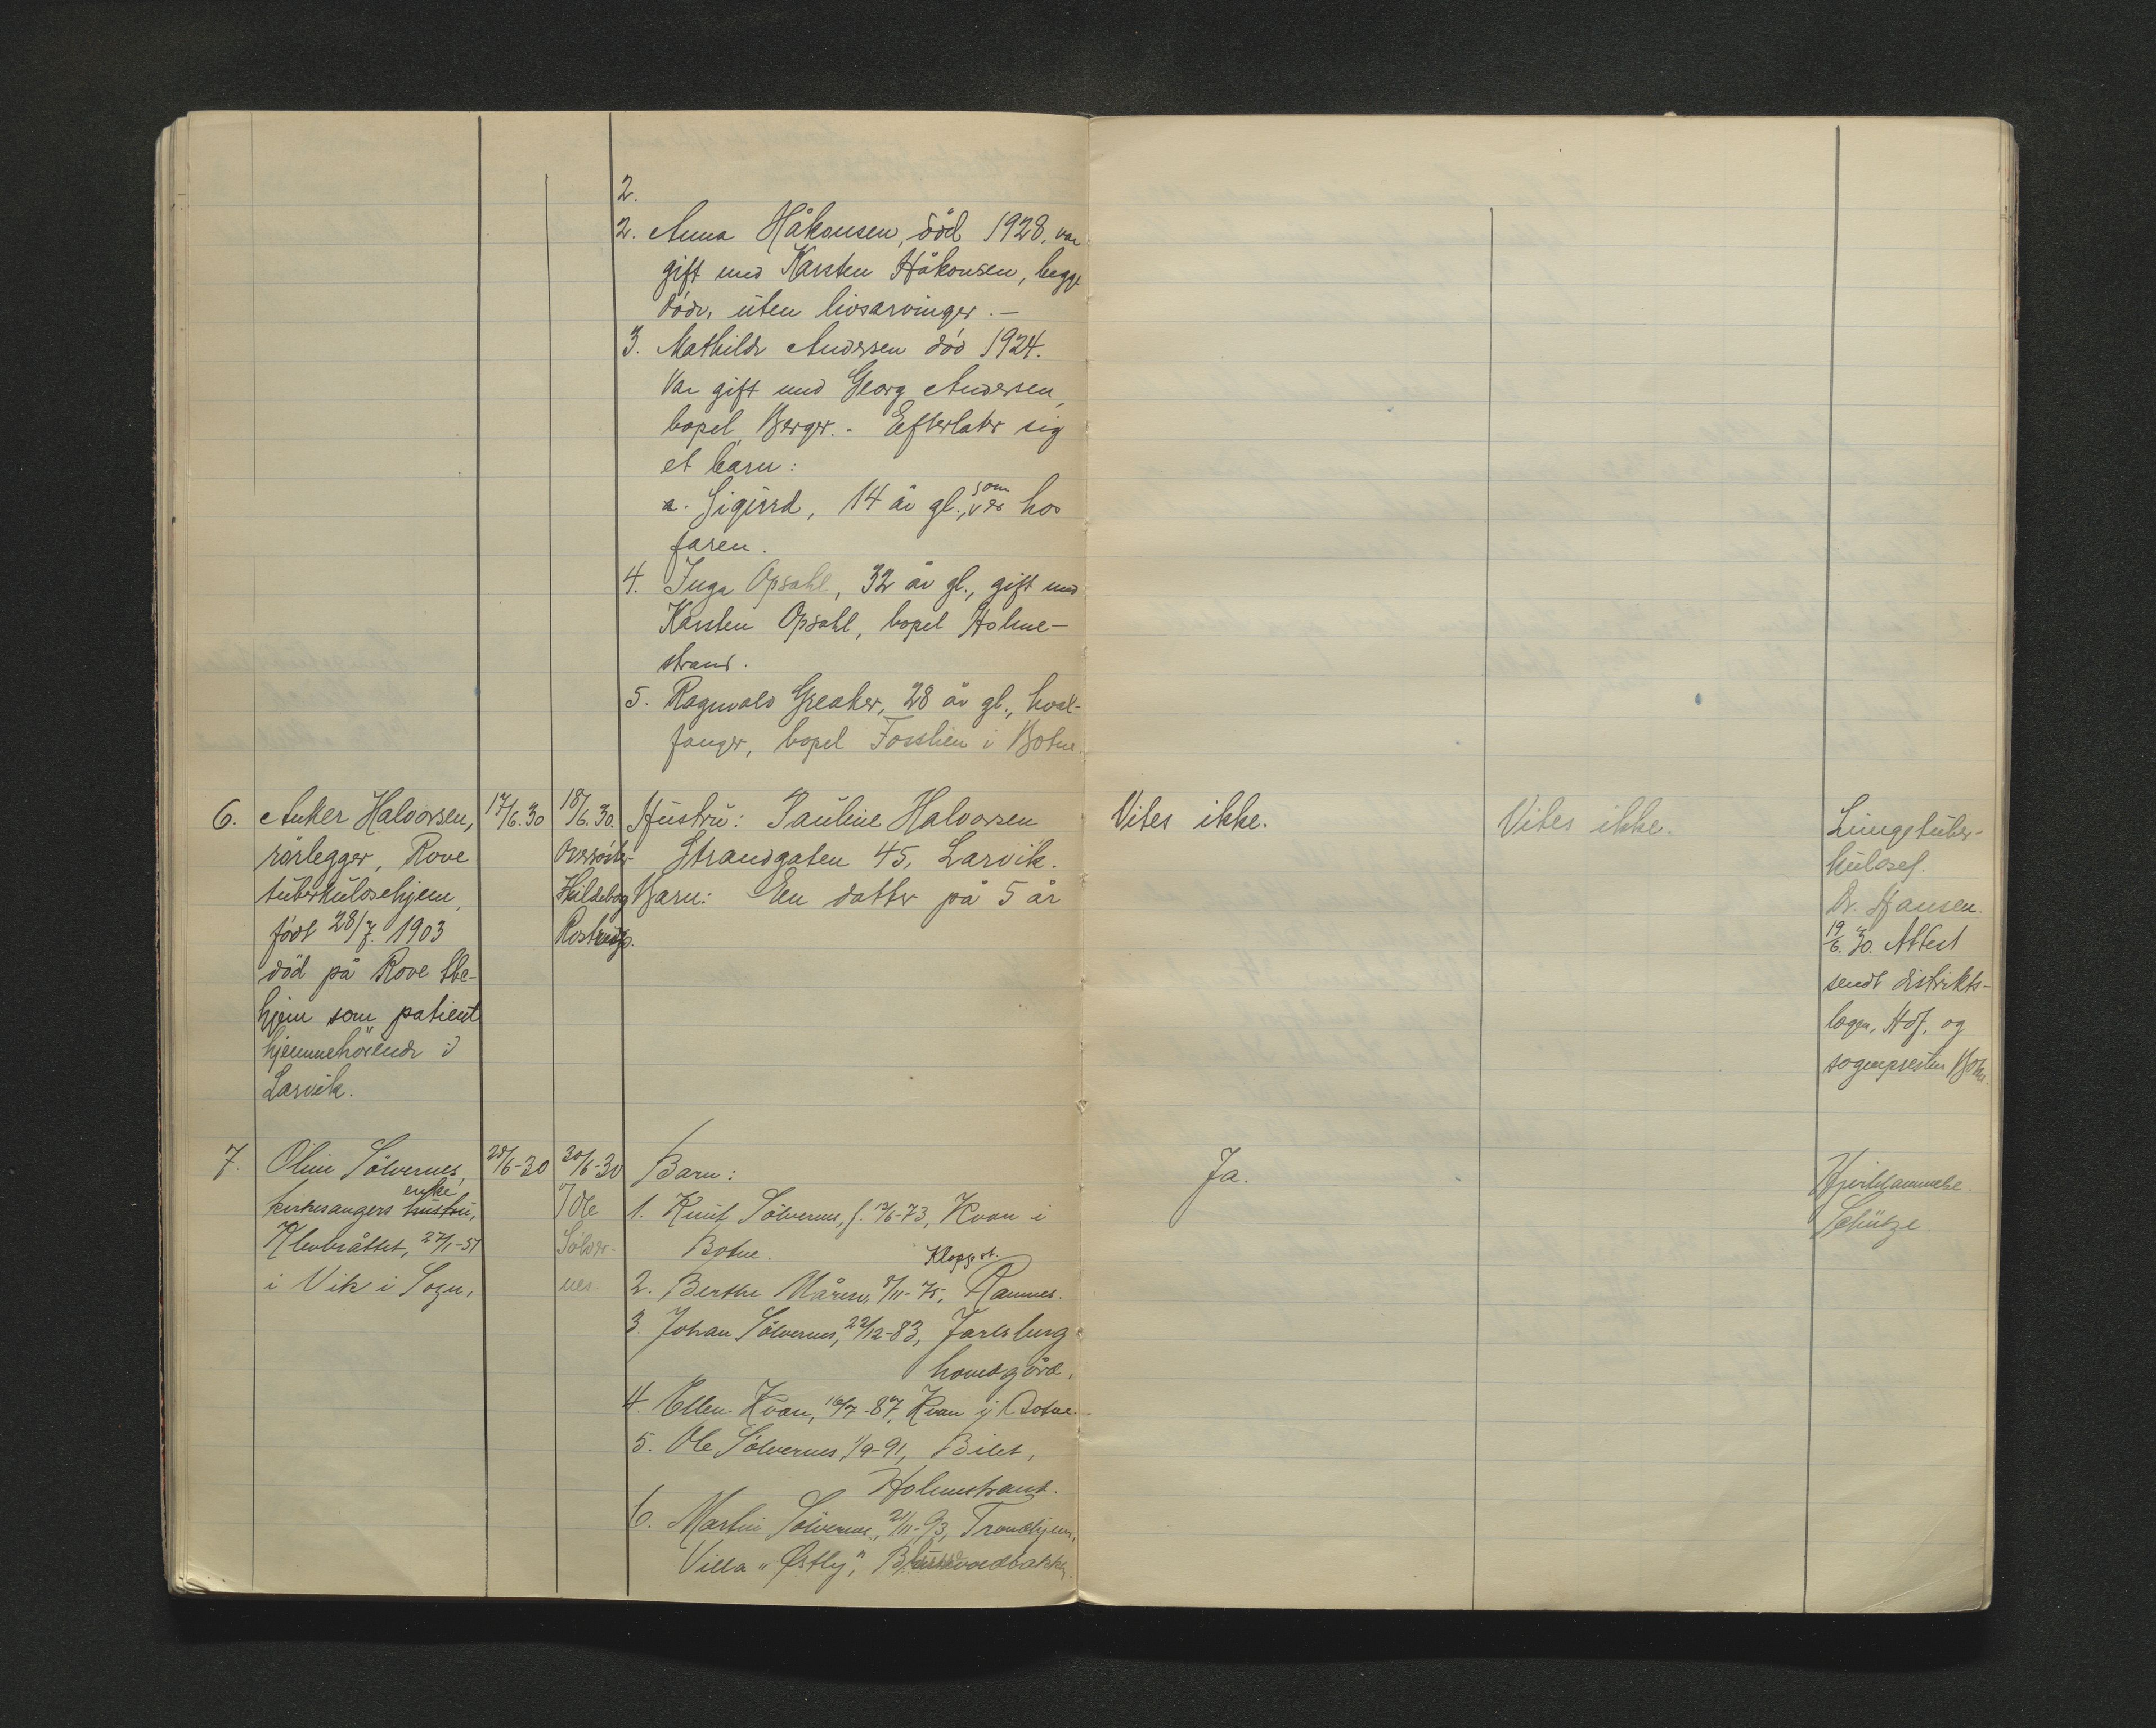 2.
2. Anna Håkonsen, död 1928, var
gift med Karsten Håkonsen, begge
döde, uten livsarvinger. —
3. Mathilde Andersen död 1924.
Var gift med Georg Andersen,
bopel Berger. - Efterlater sig
et barn:
a. Sigurd, 14 år gl., som er hos
faren.
4. Inga Opsahl, 32 år gl., gift med
Karsten Opsahl, bopel Holme-
strand.
5. Ragnvald Greaker, 28 år gl., hval-
fanger, bopel Fosslien i Botne.
6. Anker Halvorsen,
rörlegger, Rove
tuberkulosehjem,
födt 28/7. 1903
död på Rove tbc-
hjem som patient
hjemmehörende i
Larvik.
17/6.30
18/6.30.
Oversöster
Hildeborg
Rostrup.
Hustru: Pauline Halvorsen
Strandgaten 45, Larvik.
Barn: En datter på 5 år
Vites ikke.
Vites ikke.
Lungetuber-
kulose.
Dr. Hansen.
19/6.30. Attest
sendt distrikts-
lægen, Hof, og
sognepresten Botne.
7. Oline Sölvernes,
kirkesangers hustru, enke,
27/1-51
i Vik i Sogn.
28/6-30
30/6-30
Ole
Sölver-
nes.
Barn:
1. Knut Sölvernes, f. 12/6-73, Kvan i
Botne.
2. Berthe Måren, 8/11-75, Kloppst. Ramnes.
3. Johan Sölvernes, 22/12-83, Jarlsberg
hovedgård.
4. Ellen Kvan, 16/7-87, Kvan i Botne.
5. Ole Sölvernes, 1/9-91, Bilet,
Holmestrand.
6. Martin Sölvernes, 21/11-93, Trondhjem,
Villa "Østly",
Ja.
Hjertelammelse.
Schütze.